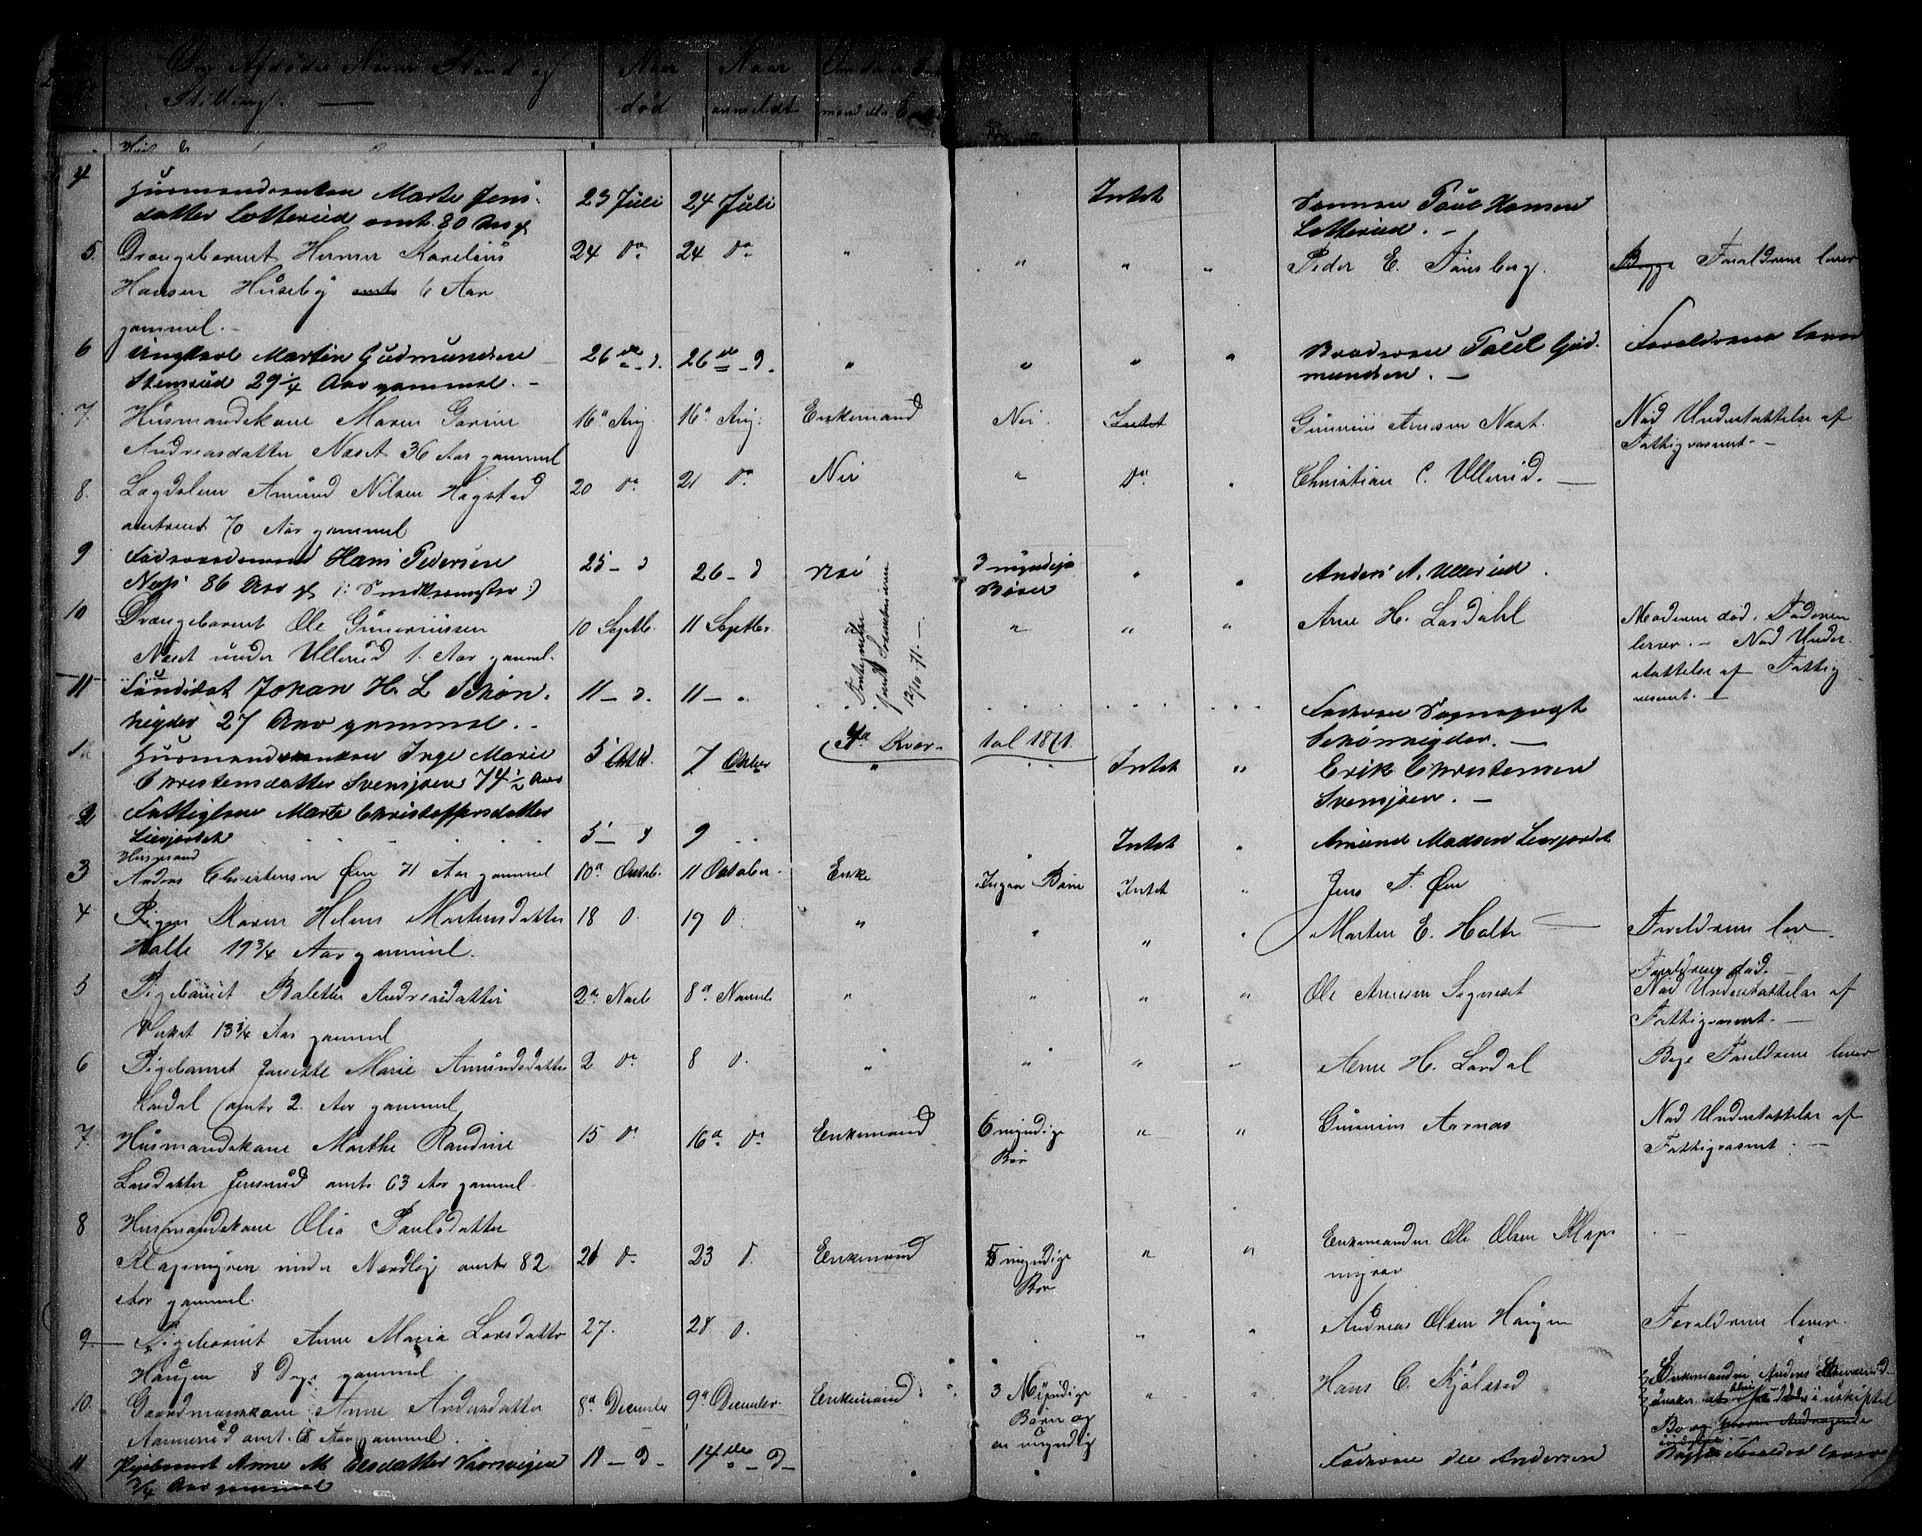 Den Afdødes Navn Stand og
Stilling.
Naar
død
Naar
anmeldt
4 Husmandsenken Marte Jens-
datter Lotterud omt. 80 Aar gl
23 Juli 24 Juli Intet Sønnen Poul Hansen
Lotterud. -
5. Drengebarnet Herman Karelius
Hansen Huseby omtr 6 Aar
gammel. -
24 do 24 do " " " " Peder E. Tønsberg. Begge Forældrene lever
6 Ungkarl Martin Gudmundsen
Stensrud 29 1/4 Aar gammel. -
26de - d. 26de - d. " " " " Broderen Poul Gud-
mundsen. -
Forældrene lever
7. Husmandskone Maren Gorine
Andreasdatter Næset 36 Aar gammel
16a Aug 16a Aug. Enkemand Nei. Intet Gunerius Arnesen Næset.
Nød Understøttelse af
Fattigvæsenet. -
8. Lægdslem Amund Nilsen Hagstad
omtrent 70 Aar gammel
20 do 21 do Nei " do " Christian C. Ullerud.
9 Føderaadsmand Hans Pedersen
Næss 86 Aar gl
25 - d 26 - d Nei 3 myndige
Børn
" " Anders A. Ullerud.
10 Drengebarnet Ole Gunerussen
Næset under Ullerud 1. Aar gammel.
10 Septbr. 11 Septbr. " " " Arne H. Lardahl
Moderen død. Faderen
lever. - Nød Under-
støttelse af Fattig
væsenet. -
12/10 71. -
11 Candidat Johan H. L. Schøn-
heyder 27 Aar gammel. -
11 - d. 11 - " Faderen Sogneprest
Schønheyder. -
4de Kvar-
tal 1871.
1. Husmandsenken Inge Marie
Christensdatter Svensjøen 74 1/2 Aar
5 Octb. 7 Octber " Intet " Erik Christensen
Svensjøen. -
2 Fattiglem Marte Christoffersdatter
Liesjordet
5 - d 9 Intet " Amund Madsen Liesjordet
3 Husmand
Anders Christensen Øen 71 Aar gammel
10a Octob. 11 October. Enke Ingen Børn Intet " Jens T. Øen
4 Pigen Karen Helene Martensdatter
Holte 19 3/4 Aar gammel.
18 d. 19 d. " " " " Morten E. Holte Forældrene lev.
5 Pigebarnet Bolette Andreasdatter
Verket 13 3/4 Aar gammel
2a Novb 8a Novemb " " " " Ole Arnesen Sogneset
Forældrene død. -
Nød Understøttelse af
Fattigvæsenet. -
6 Pigebarnet Janette Marie Amundsdatter
Lardal omtr 2. Aar gammel
2 do 8 d. " " " - Arne H. Lardal Bege Forældrene lever
7. Husmandskone Marthe Randine
Larsdatter Jensrud omtr 63 Aar gammel.
15 do 16a do Enkemand 6 myndige
Bør
" " Gunerius Aarnæs
Nød Understøttelse af
Fattigvæsenet. -
8 Husmandskone Olia Paulsdatter
Klapmyren under Nordby omtr 82
Aar gammel.
20 do 23 d. Enkemand 5 myndige
Bør
" " Enkemanden Ole Olsen Klap
myren
9 Pigebarnet Anne Maria Larsdatter
Haugen 8 Dage gammel
27. 28 d. " " " Andreas Olsen Haugen Forældrene lever.
10. Gaardmandskone Anne Andersdatter
Aamerud omt. 68 Aar gammel.
8a December 9a December. Enkemand 3 Myndige
Børn og
en umyndig
" " Hans C. Kjølstad
Enkemanden Anders
ønsker at i uskiftet
Bo og
11 Pigebarnet Anne M. Olesdatter Korsvigen
3/4 Aar gammel
11 - d - 14de - d - " " Faderen Ole Andersen Begge Forældre lever